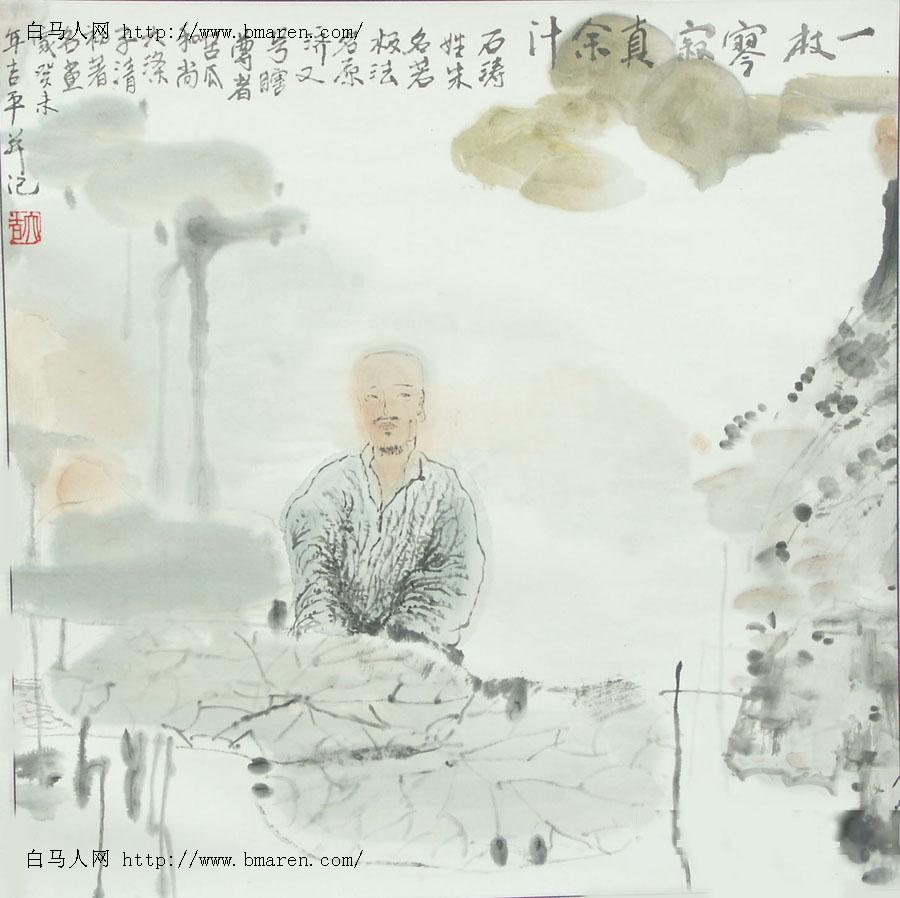 白马人网 http://www.bmaren.com/
一枝寥寂真余汁
石涛
姓朱
名若
极法
名原
济又
号瞎
尊者
苦瓜
和尚
大涤
子清
初著
名画
家癸未
年吉平并记
白马人网 http://www.bmaren.com/